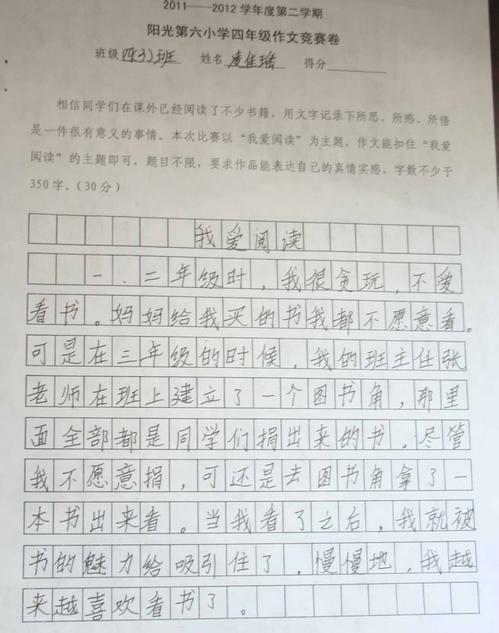 2011——2012学年度第二学期
阳光第六小学四年级作文竞赛卷
班级 四(3)班 姓名 凌佳瑶 得分
相信同学们在课外已经阅读了不少书籍，用文字记录下所思、所感、所悟
是一件很有意义的事情。本次比赛以“我爱阅读”为主题，作文能扣住“我爱
阅读”的主题即可，题目不限，要求作品能表达自己的真情实感，字数不少于
350字。（30分）
我爱阅读
一、二年级时，我很贪玩，不爱
看书。妈妈给我买的书我都不愿意看。
可是在三年级的时候，我的班主任张
老师在班上建立了一个图书角，那里
面全部都是同学们捐出来的书。尽管
我不愿意捐，可还是去图书角拿了一
本书出来看。当我看了之后，我就被
书的魅力给吸引住了，慢慢地，我越
来越喜欢看书了。